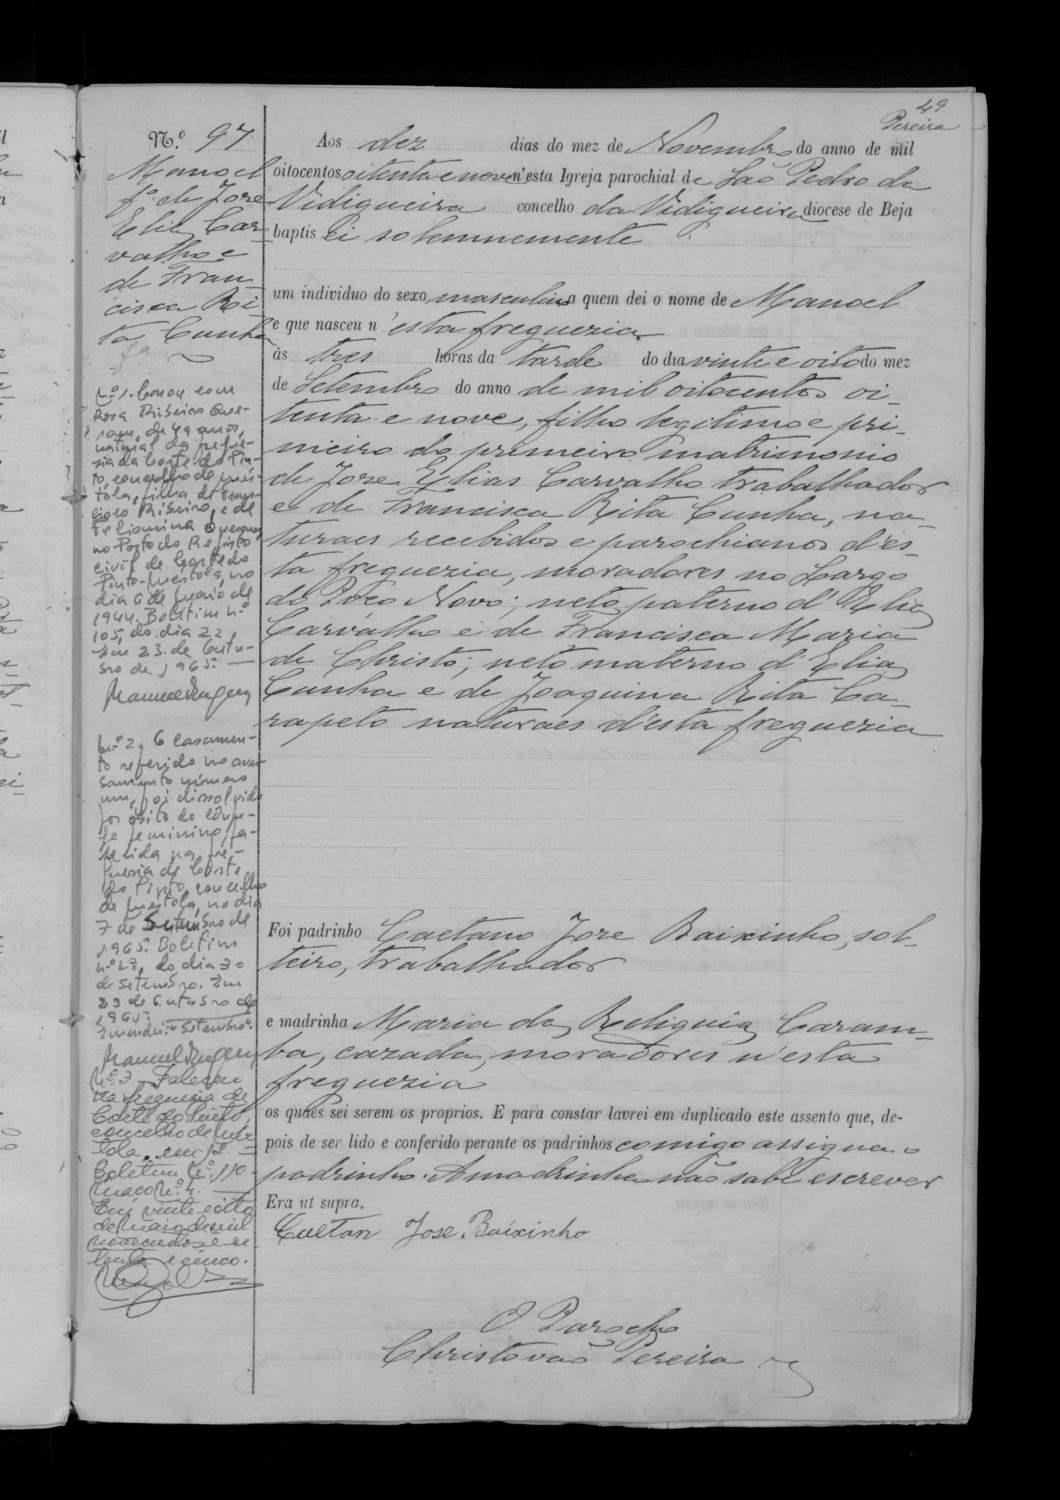 49
Pereira
N.º 97
Manoel
f.º de Jose
Elias Car-
valho e
de Fran-
cisca Ri-
ta Cunha
Aos dez dias do mez de Novembro do anno de mil
oitocentos oitenta e nove n'esta Igreja parochial de São Pedro da
Vidigueira concelho da Vidigueira diocese de Beja
baptisei solemnemente
um individuo do sexo masculino a quem dei o nome de Manoel
e que nasceu n'esta freguezia
ás tres horas da tarde do dia vinte e oito do mez
de Setembro do anno de mil oitocentos oi-
tenta e nove, filho legitimo e pri-
meiro do primeiro matrimonio
de Jose Elias Carvalho trabalhador
e de Francisca Rita Cunha, na-
turaes recebidos e parochianos d'es-
ta freguezia, moradores no Largo
do Poco Novo; neto paterno d'Elias
Carvalho e de Francisca Maria
de Christo; neto materno d'Elias
Cunha e de Joaquina Rita Ca-
rapeto naturaes d'esta freguezia
Foi padrinho Caetano Jose Baixinho, sol-
teiro, trabalhador
e madrinha Maria das Reliquias Caram-
ba, cazada, moradores n'esta
freguezia
os quaes sei serem os proprios. E para constar lavrei em duplicado este assento que, de-
pois de ser lido e conferido perante os padrinhos comigo assigna o
padrinho. A madrinha não sabe escrever
Era ut supra.
Caetan Jose. Baixinho
O Parocho
Christovão Pereira
Nº 1. Casou com
Rosa Ribeiro Que-
rom, de 49 anos,
natural da fregue-
sia da Corte do Pin-
to, concelho de Mér-
tola, filha de Fran-
cisco Ribeiro e de
Felismina
no Posto do Registo
civil de Corte do
Pinto-Mertola, no
dia 6 de Maio de
1944. Boletim nº
105, do dia 22,
Em 23 de Outu-
bro de 1965.
Nº 2, O casamen-
to referido no aver-
bamento número
um, foi dissolvido
por óbito do cônju-
ge feminino, fa-
lecida na fre-
guesia de Corte
do Pinto, concelho
de Mertola, no dia
7 de Setembro de
1965. Boletim
nº 27, do dia 30
de Setembro. Em
23 de Outubro de
1965.
Emendei: "Setembro".
Nº 3 Faleceu
na freguesia de
Corte do Pinto,
concelho de Mér-
tola.
Boletim Nº 110
Maço Nº 4.
Em vinte e oito
de Maio de mil
novecentos e se-
tenta e cinco.